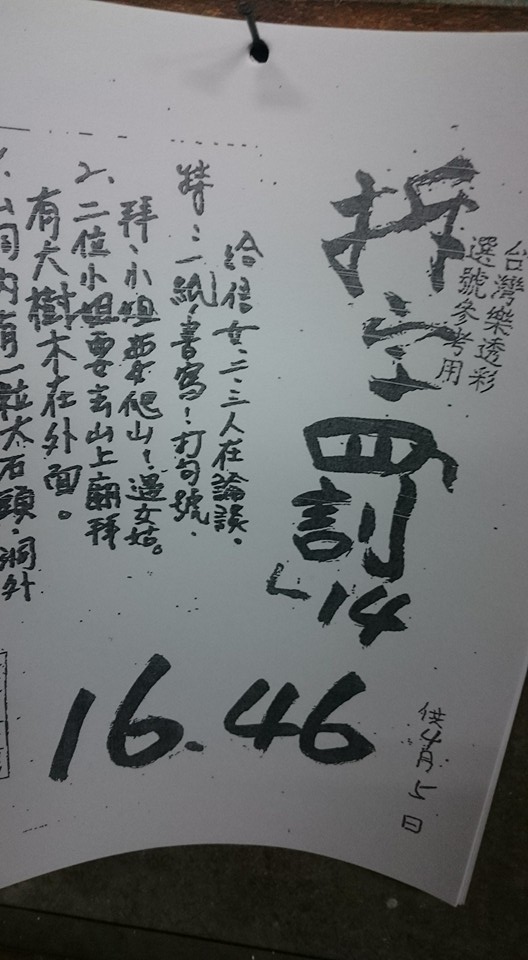 台灣樂透彩
選號參考用
供4月5日
拆字罰
14
16.46
給信女、二三人在論談。
一紙!書寫!打句號、
拜、小姐要爬山!
2、二位小姐要去山上廟拜
有大樹木在外面。
內有一粒大石頭、洞外